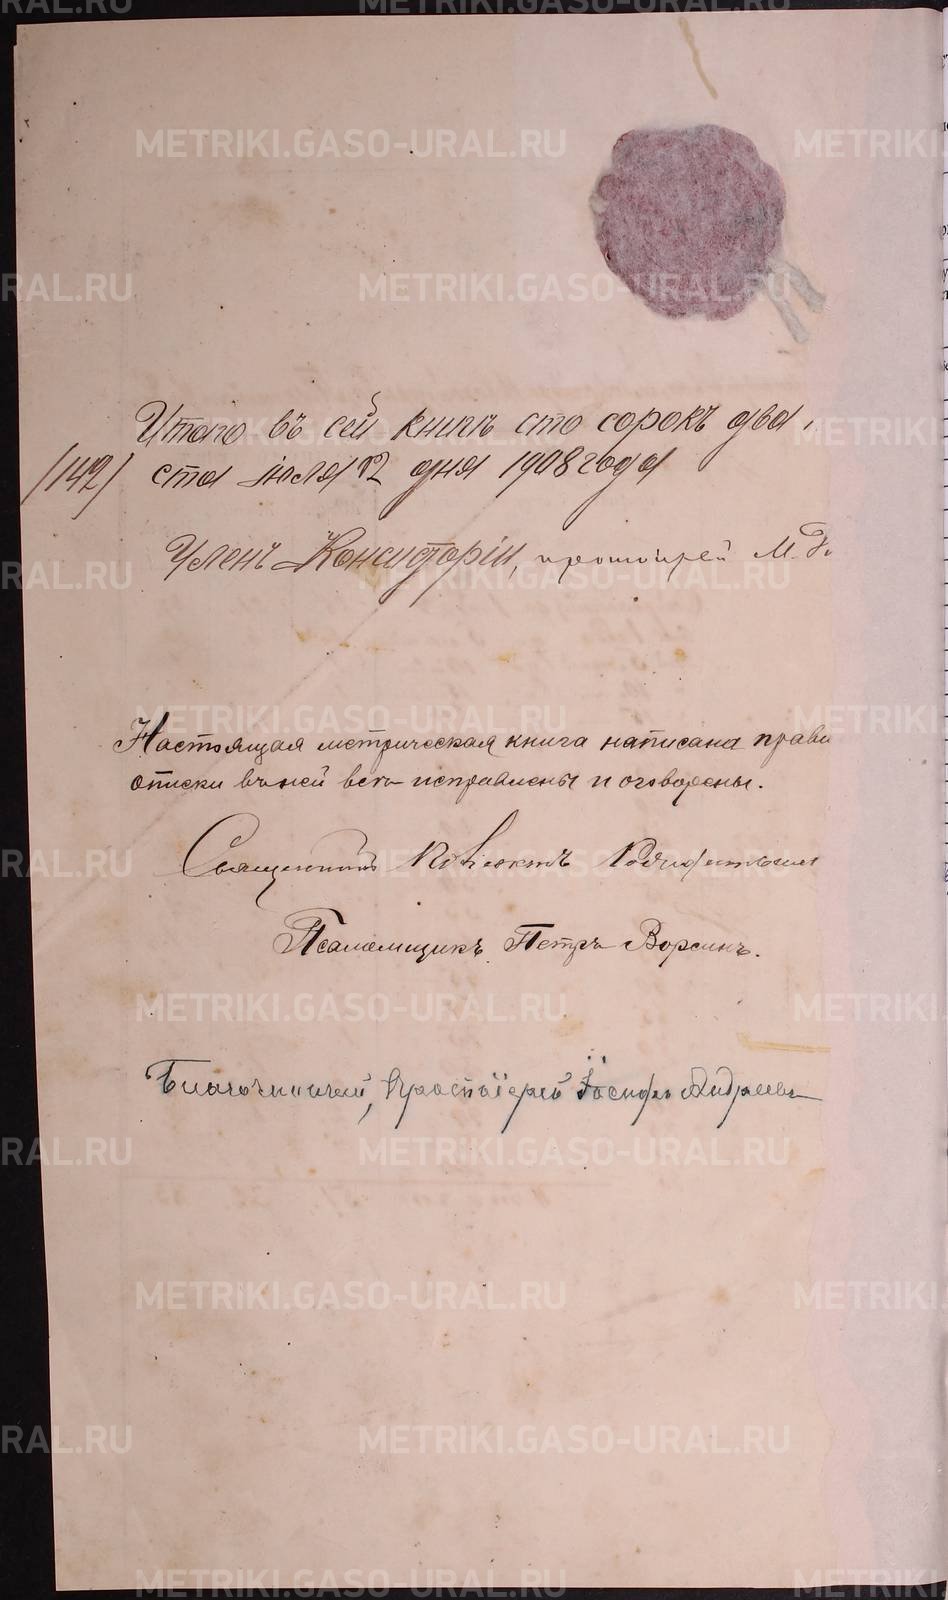 Итого въ сей книгѣ сто сорокъ два
/142/ ста іюля 12 дня 1908 года
Членъ Консисторіи, протоіерей М.
Настоящая метрическая книга написана прави
описки въ ней всѣ исправлены и оговорены.
Священникъ
Псаломщикъ Петръ Ворсинъ.
Благочинный, Протоіерей Іосифъ Андреевъ
METRIKI.GASO-URAL.RU